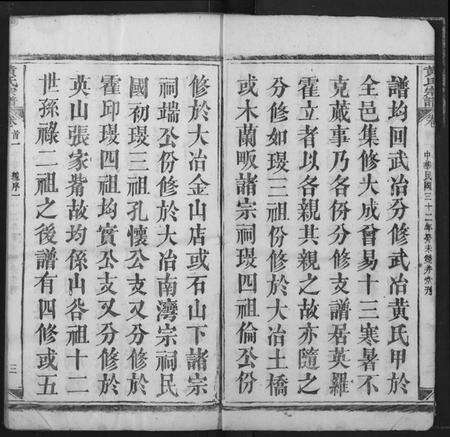 黃氏宗譜
卷
中華民國三十二年癸未
譜均回武冶分修武冶黃氏甲於
全邑集修大成曾易十三寒暑不
克蕆事乃各分修支譜居英羅
霍立者以各親其親之故亦隨之
分修如瑗三祖份修於大冶土橋
或木蘭畈諸宗祠瑗四祖倫公份
修於大冶金山店或石山下諸宗
祠端公份修於大冶南灣宗祠民
國初瑗三孔懷公支又分修於
霍邱瑗四祖均實公支又分修於
英山張家嘴故均係山谷祖十二
世孫祿二祖之後譜有四修或五
黃氏宗譜
卷首一
譜序一
三